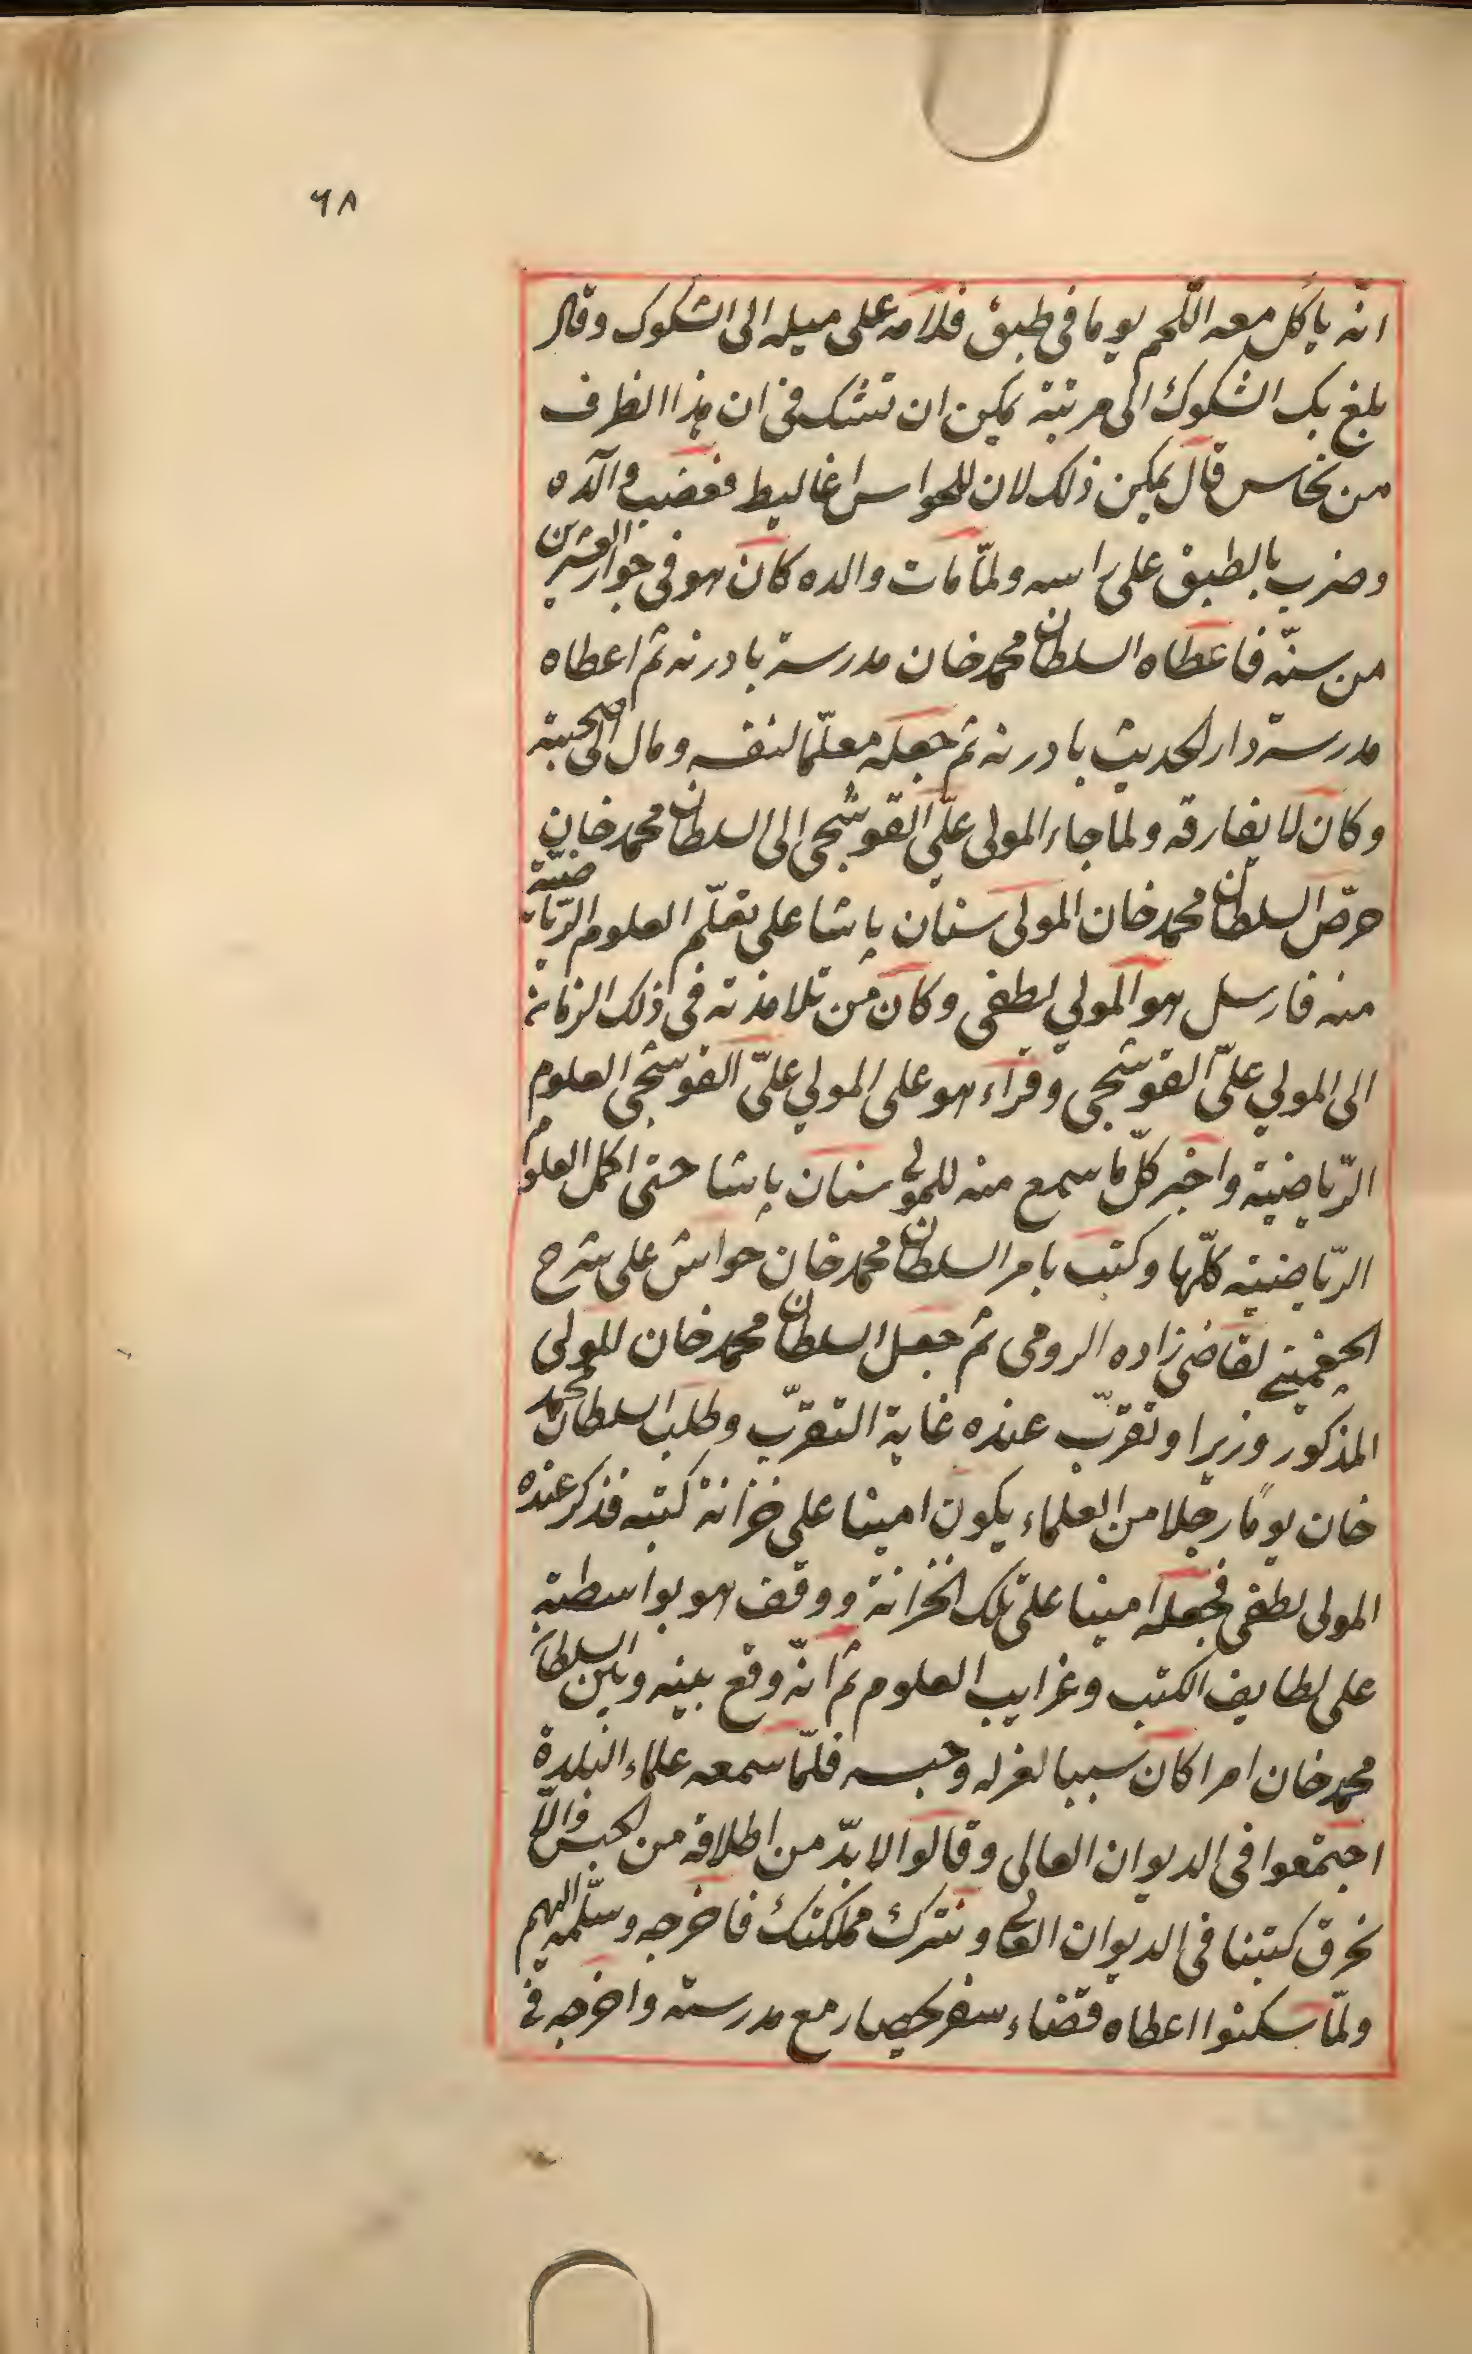 ٦٨
انّه ياكل معه اللّحم يوما فى طبق فلامه على ميله الى الشكوك وقال
بلغ بك الشكوك الى مرتبة يمكن ان تشك فى ان هذا الظرف
من نحاس قال يمكن ذلك لان للحواس اغاليط فغضب والده
وضرب بالطبق على راسه ولمّا مات والده كان هو فى جوار العشرين
من سنّه فاعطاه السلطان محمد خان مدرسة بادرنه ثم اعطاه
مدرسة دار الحديث بادرنه ثم جعله معلّما لنفسه ومال الى صحبته
وكان لا يفارقه ولما جاء المولى علىّ القوشجى الى السلطان محمد خان
حرّض السلطان محمد خان المولى سنان پاشا على تعلّم العلوم الرّياضيّة
منه فارسل هو المولى لطفى وكان من تلامذته فى ذلك الزمان
الى المولى علىّ القوشجى وقراء هو على المولى علىّ القوشجى العلوم
الرّياضيّة واخبر كلّ ما سمع منه للمولى سنان پاشا حتى اكمل العلوم
الرّياضيّة كلّها وكتب بامر السلطان محمد خان حواش على شرح
الچغمينى لقاضى زاده الرومى ثم جعل السلطان محمد خان للمولى
المذكور وزيرا وتقرّب عنده غاية التقرّب وطلب السلطان محمد
خان يومًا رجلا من العلماء يكون امينا على خزانة كتبه فذكر عنده
المولى لطفى فجعله امينا على تلك الخزانة ووقف هو بواسطته
على لطايف الكتب وغرايب العلوم ثم انّه وقع بينه وبين السلطان
محمد خان امرا كان سببا لعزله وحبسه فلمّا سمعه علماء البلدة
اجتمعوا فى الديوان العالى وقالوا لابدّ من اطلاقه من الحبس والّا
نحرق كتبنا فى الديوان العالى ونترك مملكتك فاخرجه وسلّمه اليهم
ولمّا سكنوا اعطاه قضاء سفر يحصار مع مدرسته واخرجه فى